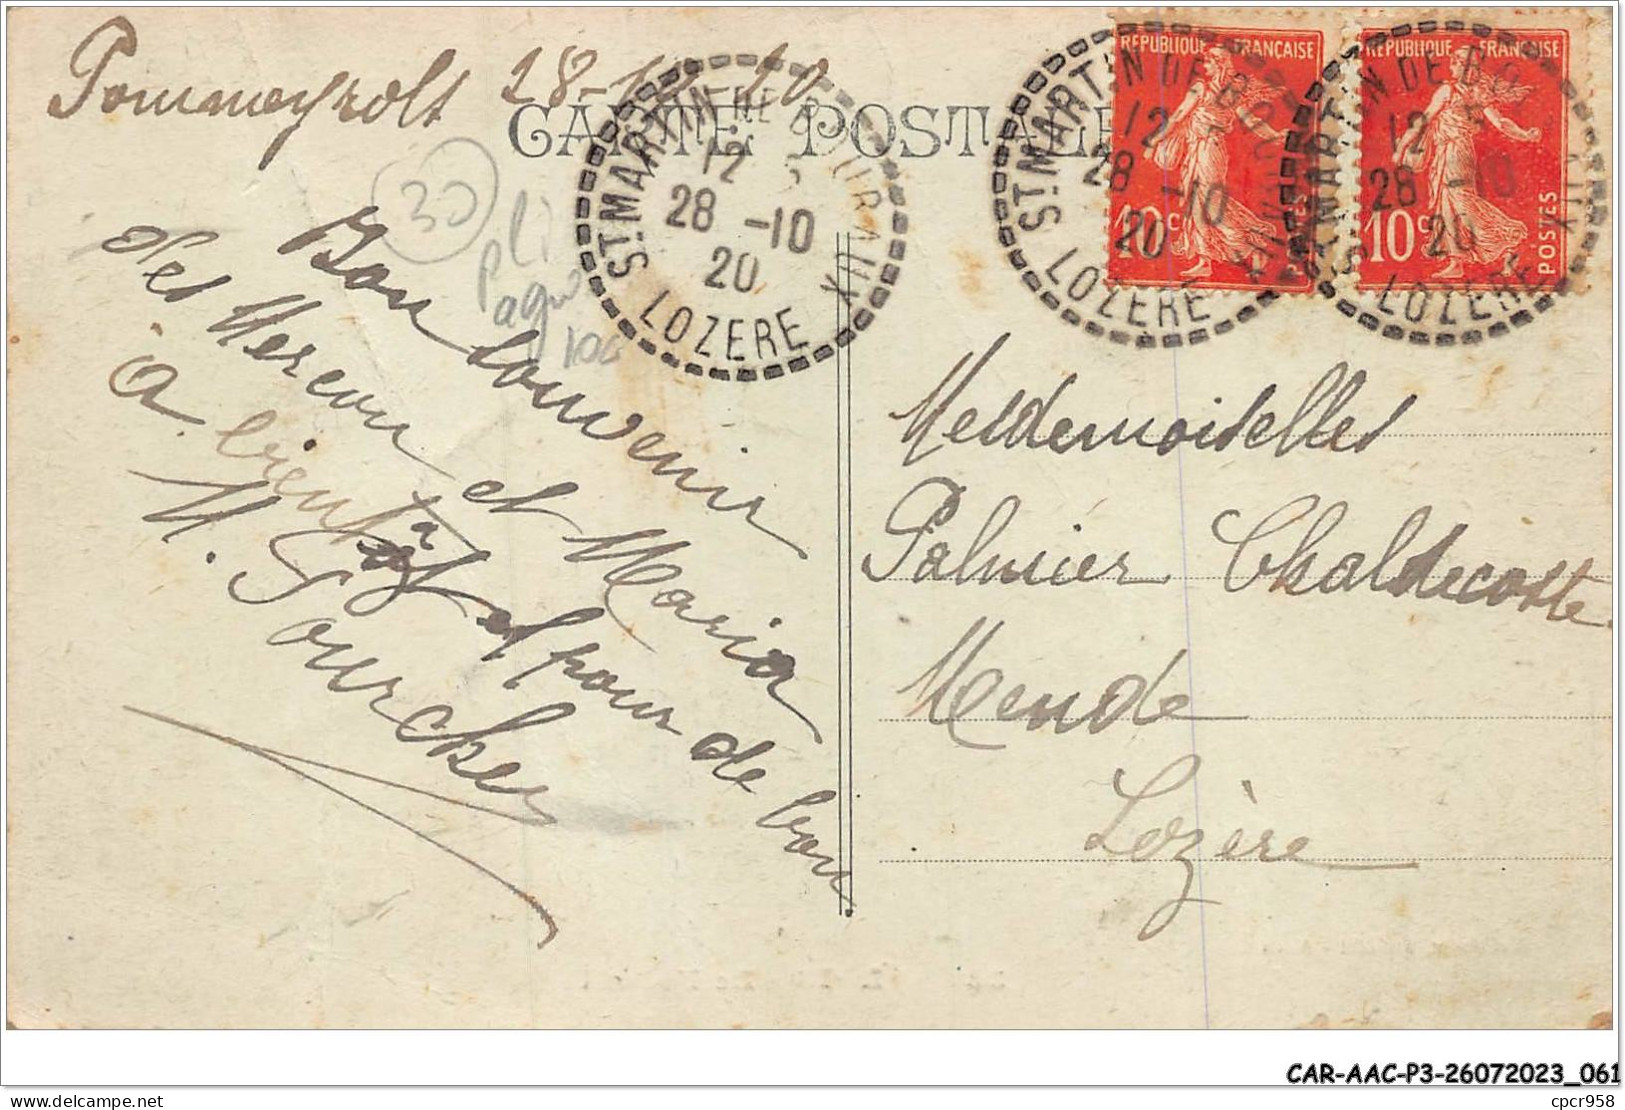 Pommeyrols 28-10-20
CARTE POSTALE
30
pli
100
ST. MARTIN DE BOUR
12
28 -10
20
LOZERE
ST. MARTIN DE BO
12
28 -10
20
LOZERE
ST. MARTIN DE BO
12
28 -10
20
LOZERE
REPUBLIQUE FRANÇAISE
10c
POSTES
REPUBLIQUE FRANÇAISE
10c
POSTES
Bon souvenir
des Mercou et Maria
à bientôt et pour de bon
M. Sourcher
Mesdemoiselles
Palmier Chaldecoste
Mende
Lozère
CAR-AAC-P3-26072023_061
cpcr958